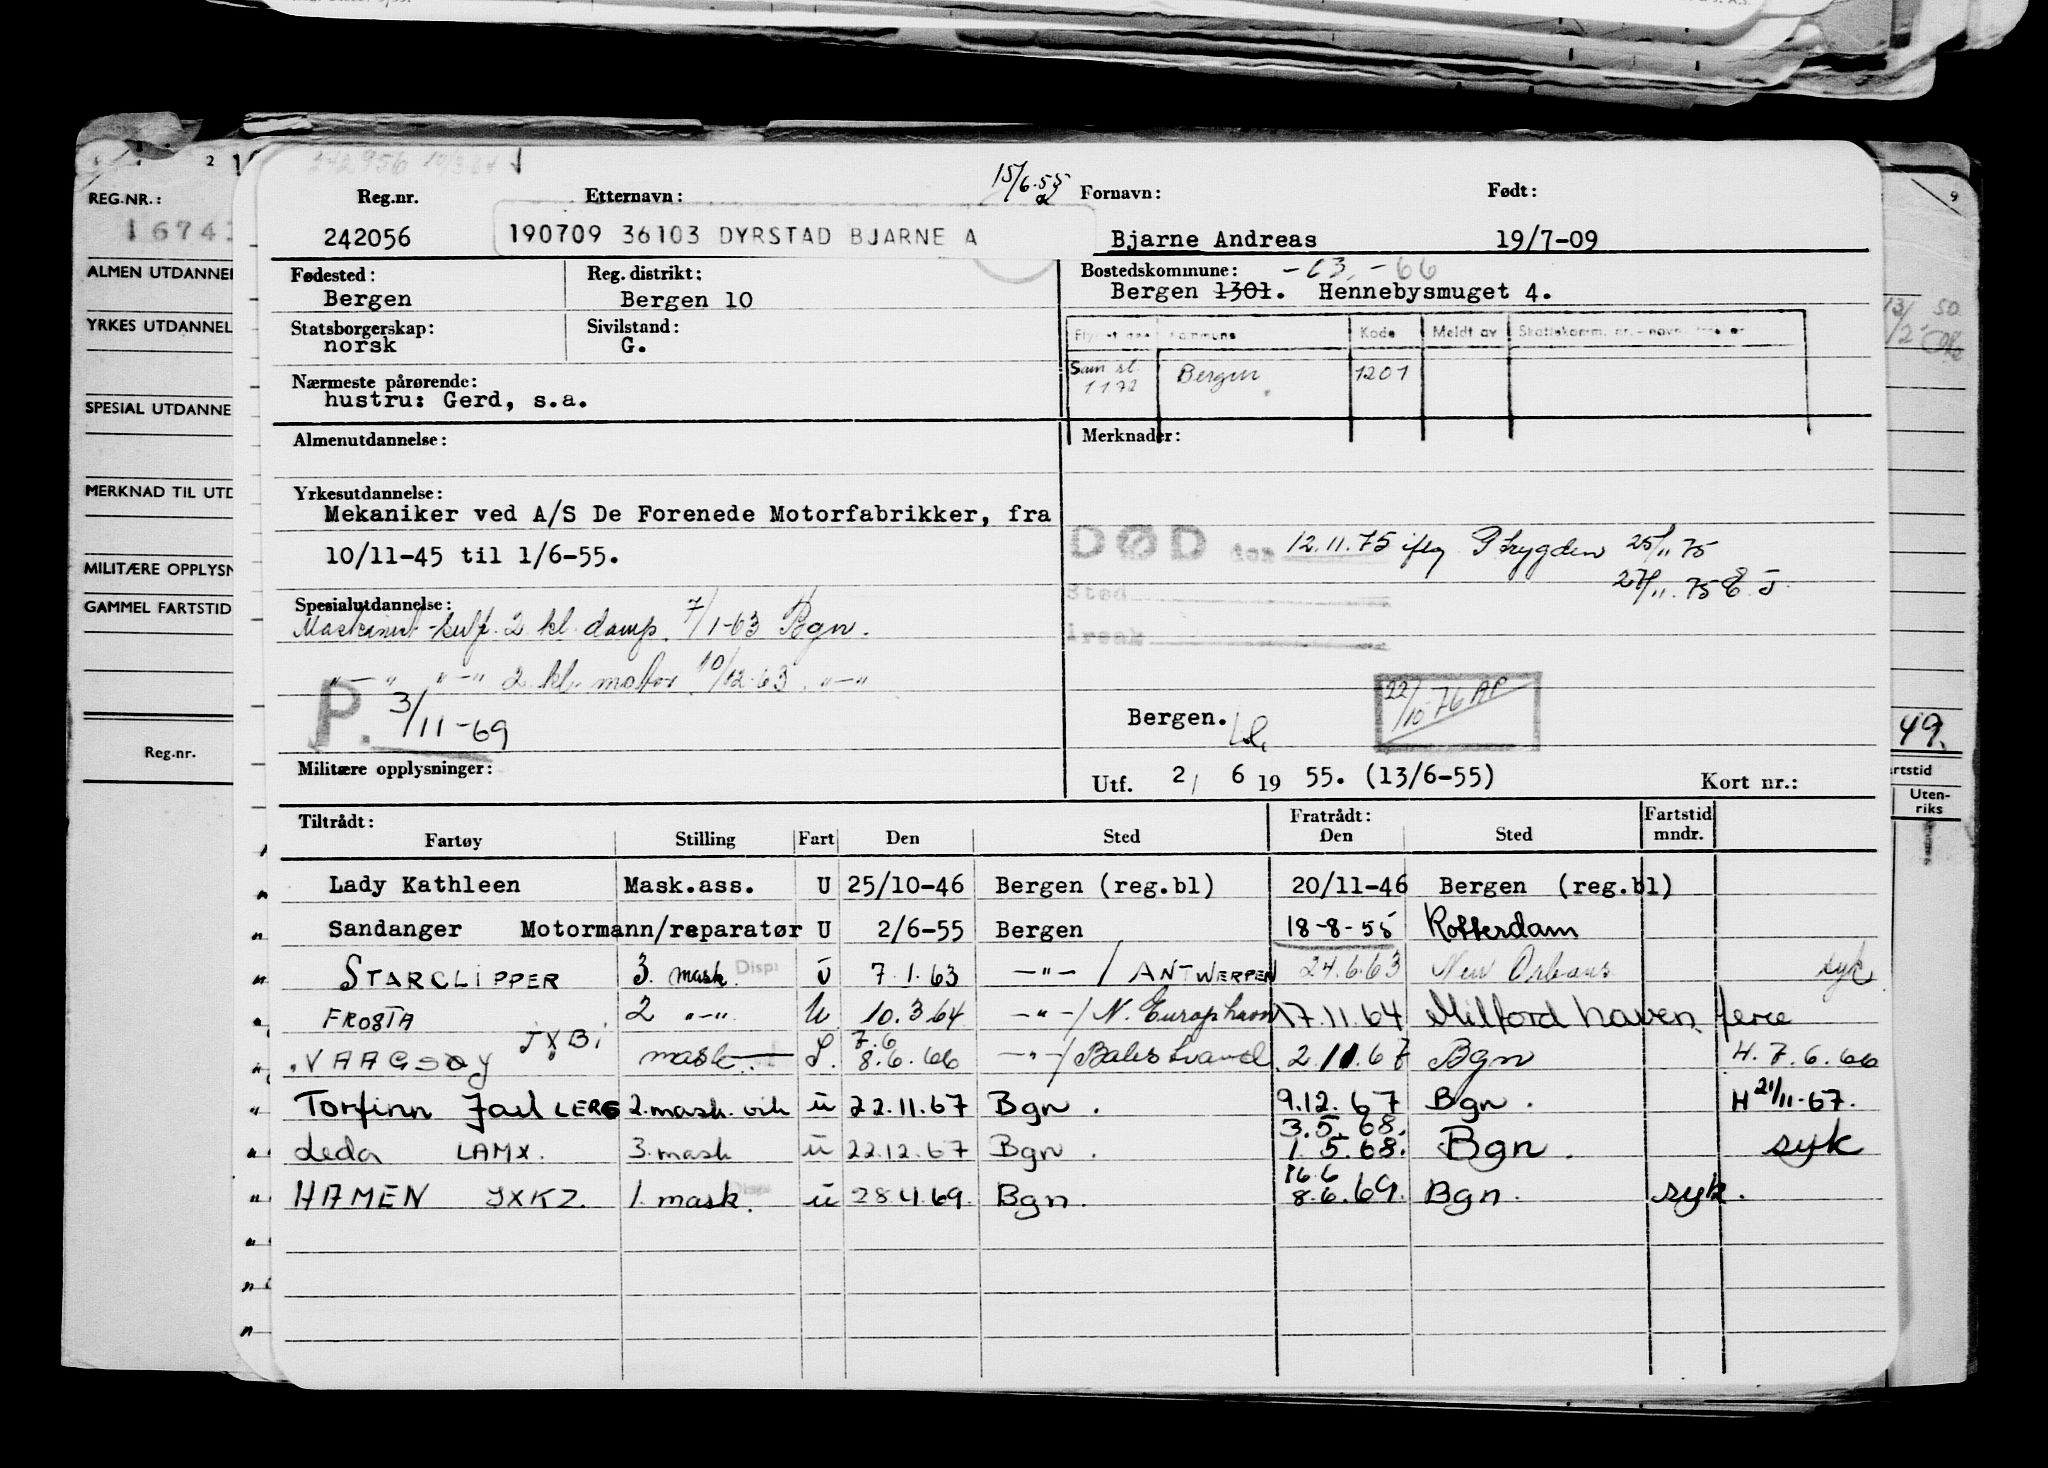 2
REG.NR.:
1674
ALMEN UTDANNEL
YRKES UTDANNEL
SPESIAL UTDANNE
MERKNAD TIL UTD
MILITÆRE OPPLYSN
GAMMEL FARTSTID
Reg.nr.
15/6.55
Reg.nr. Etternavn: Fornavn: Født:
242056 190709 36103 DYRSTAD BJARNE A Bjarne Andreas 19/7-09
Fødested: Reg. distrikt: Bostedskommune: -63.-66
Bergen Bergen 10 Bergen 1301. Hennebysmuget 4.
Statsborgerskap: Sivilstand:
norsk G.
Kode Meldt av
Sam st. 1172 Bergen 1201
Nærmeste pårørende:
hustru: Gerd, s.a.
Almenutdannelse: Merknader:
Yrkesutdannelse:
Mekaniker ved A/S De Forenede Motorfabrikker, fra
10/11-45 til 1/6-55.
DØD den 12.11.75 iflg Ptrygden 25/11 75
27/11.75 E.J.
Sted
Årsak
Spesialutdannelse:
Maskinist-sertf. 2 kl. damp. 7/1-63 Bgn.
-"- "-" 2 kl. motor 10/12-63. "-"
P. 3/11-69
Bergen.
22/10 76 AP
Militære opplysninger:
Utf. 2/ 6 19 55. (13/6-55) Kort nr.:
Tiltrådt: Fratrådt: Fartstid
Fartøy Stilling Fart Den Sted Den Sted mndr.
Lady Kathleen Mask.ass. U 25/10-46 Bergen (reg.bl) 20/11-46 Bergen (reg.bl)
Sandanger Motormann/reparatør U 2/6-55 Bergen 18-8-55 Rotterdam
STARCLIPPER 3. mask. Disp: ü 7.1.63 -"- / ANTWERPEN 24.6.63 New Orleans syk
FROSTA 2 "-" U 10.3.64 -"-/ N. Europ havn 17.11.64 Milford haven ferie
VAAGSØY JXBi mask. L. 7.6 8.6.66 -"-/ Balestrand 2.11.67 Bgn H.7.6.66
Torfinn Jarl LERG 2.mask.vik ü 22.11.67 Bgn. 9.12.67 Bgn. H 21/11-67.
Leda LAMX. 3.mask ü 22.12.67 Bgn. 3.5.68. 1.5.68. Bgn. syk
HAMEN JXKZ. 1. mask. Disp ü 28.4.69. Bgn. 16.6 8.6.69. Bgn. syk.
9
13/ 50
49.
rtstid
Uten-
riks